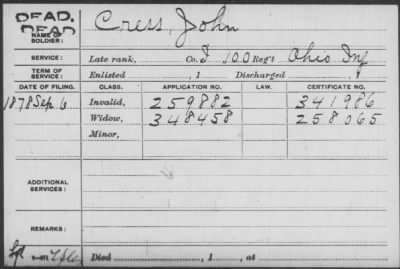 DEAD.
DEAD
NAME OF SOLDIER: Cress, John
SERVICE: Late rank, Co. I 100 Reg't Ohio Inf
TERM OF SERVICE: Enlisted , 1 Discharged , 1
DATE OF FILING. CLASS. APPLICATION NO. LAW. CERTIFICATE NO.
1878 Sep 6 Invalid, 259882 341986
Widow, 348458 258065
Minor,
ADDITIONAL SERVICES:
REMARKS:
Died , 1 , at